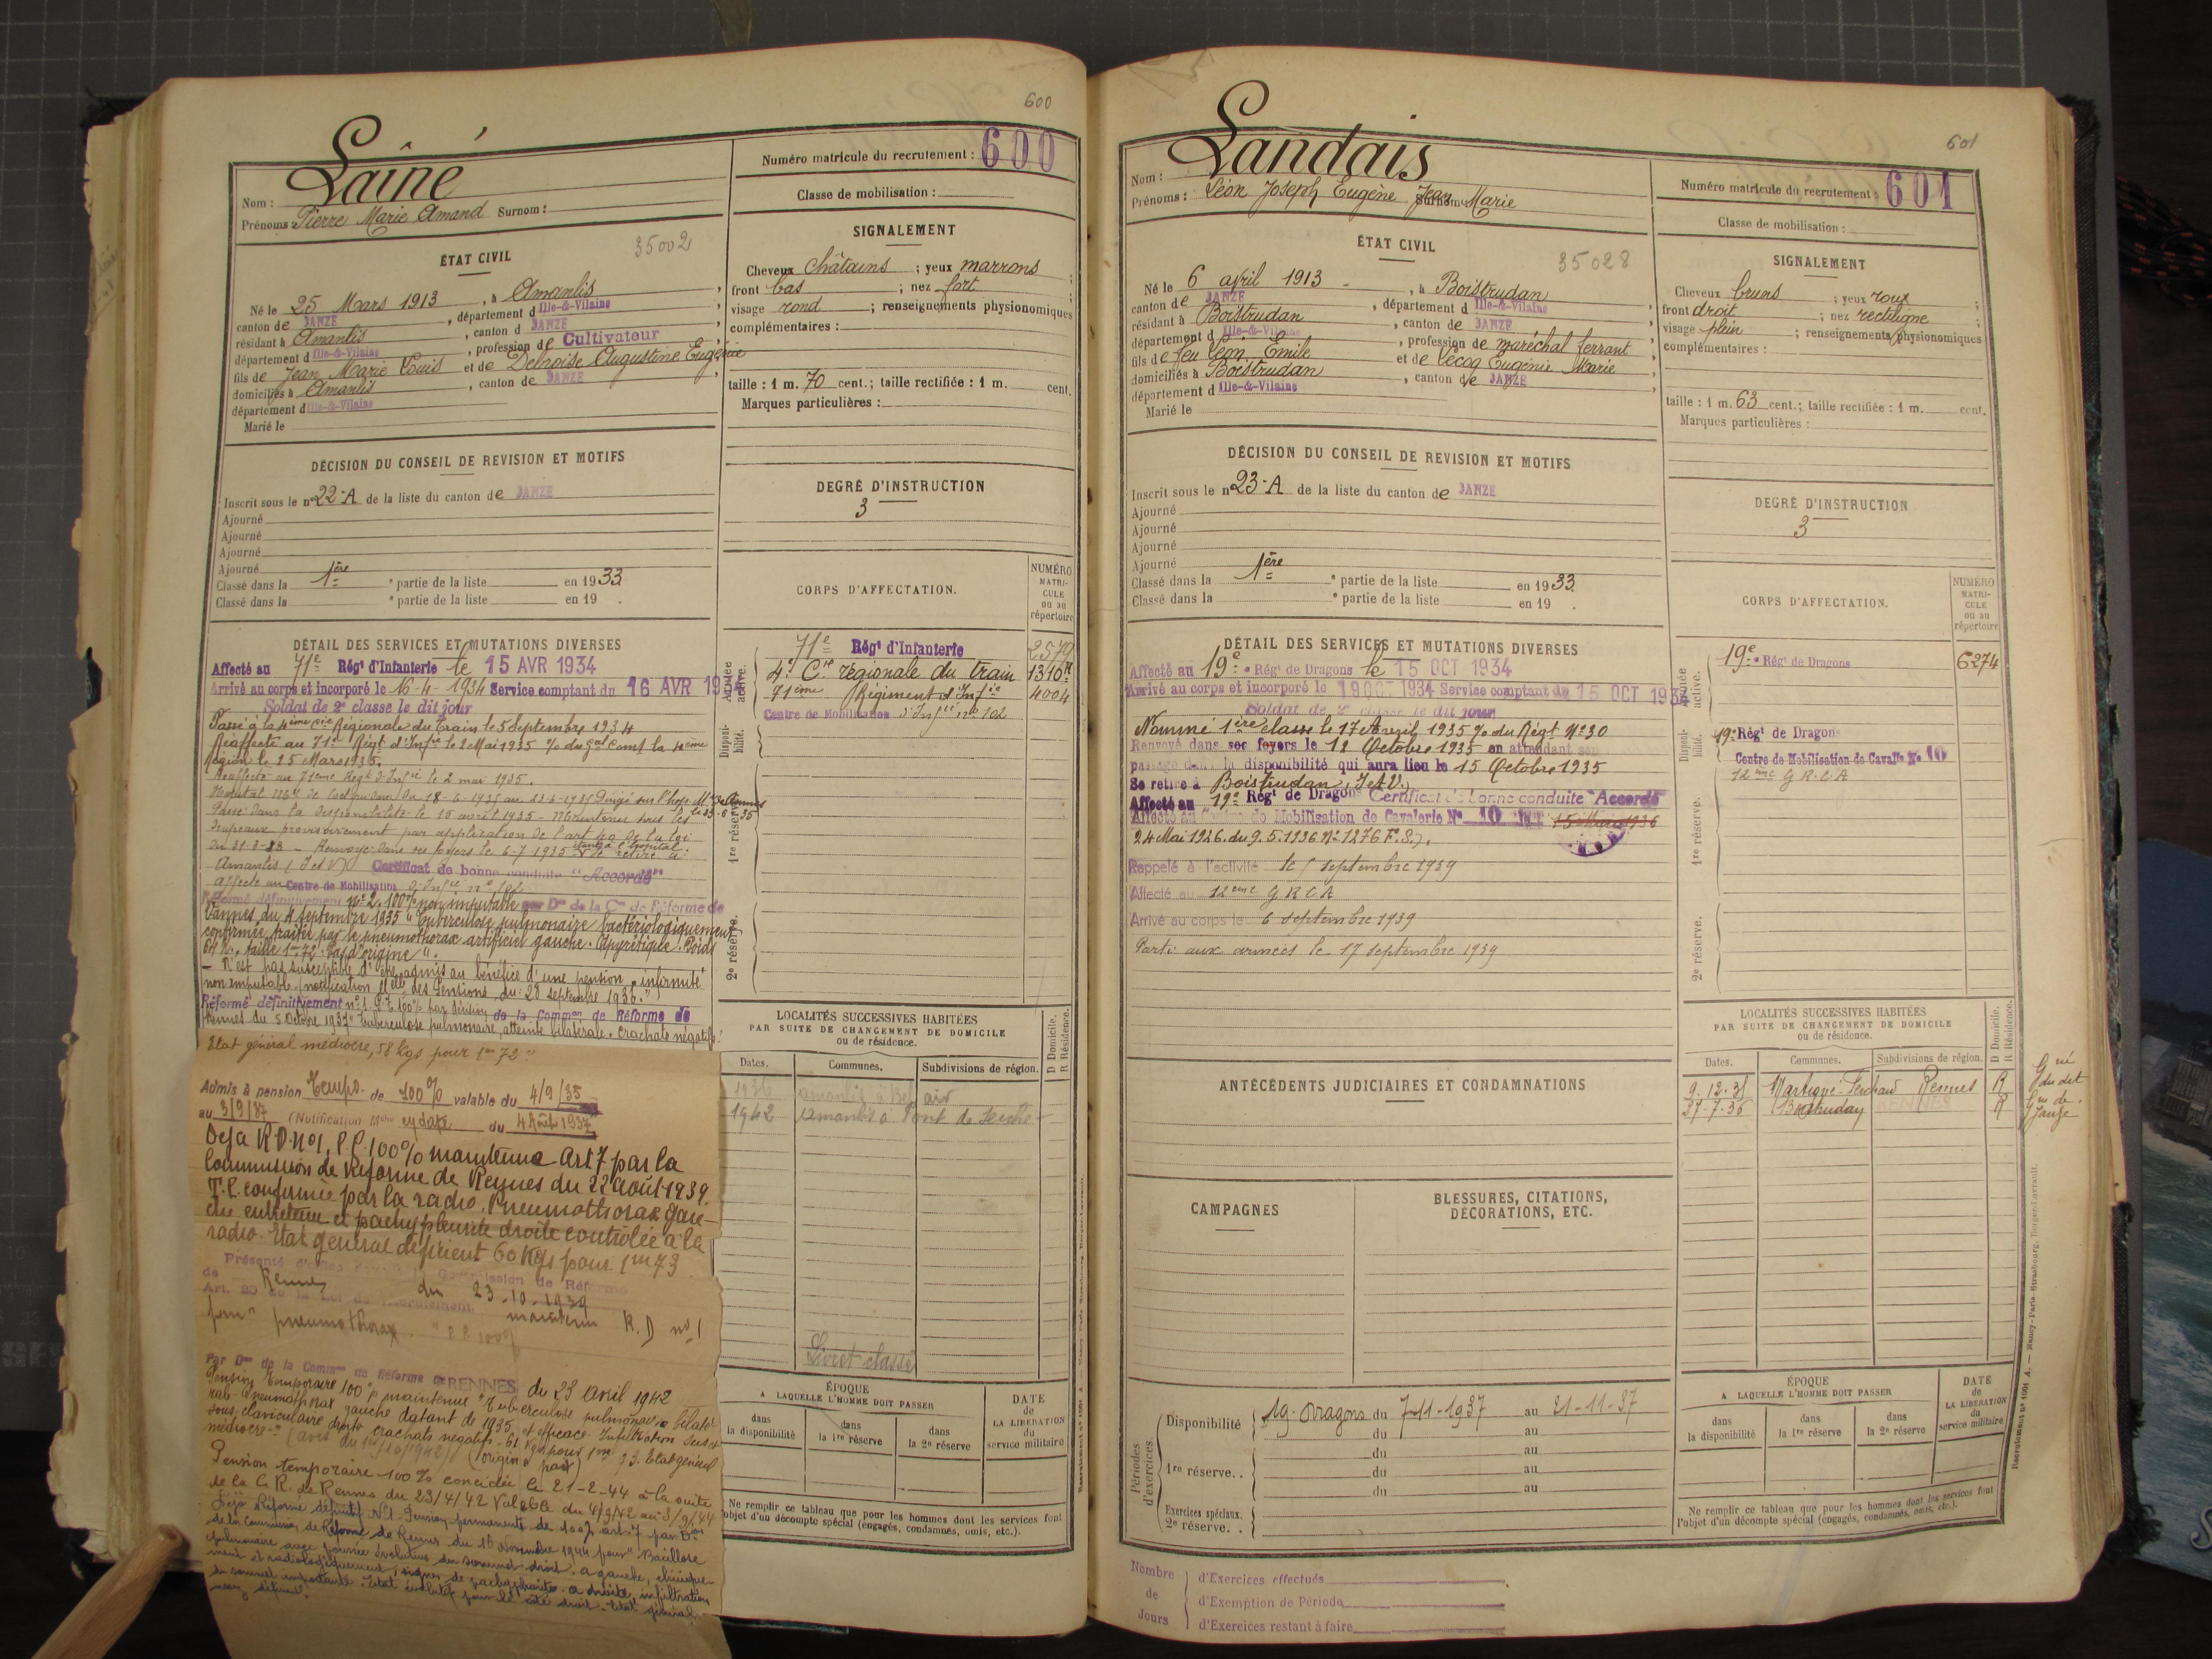 600
Lainé
Nom :
Prénoms : Pierre Marie Amand Surnom :
Numéro matricule du recrutement : 600
Classe de mobilisation :
ÉTAT CIVIL
35002
Né le 25 Mars 1913, à Amanlis,
canton de JANZE, département d Ille-&-Vilaine
résidant à Amanlis, canton d JANZE,
département d Ille-&-Vilaine, profession de Cultivateur
fils de Jean Marie Louis et de Delnoise Augustine Eugénie
domiciliés à Amanlis, canton de JANZE,
département d Ille-&-Vilaine
Marié le
SIGNALEMENT
Cheveux châtains ; yeux marrons ;
front bas ; nez fort ;
visage rond ; renseignements physionomiques
complémentaires :
taille : 1 m. 70 cent.; taille rectifiée : 1 m. cent.
Marques particulières :
DÉCISION DU CONSEIL DE REVISION ET MOTIFS
Inscrit sous le n° 22-A de la liste du canton de JANZE
Ajourné
Ajourné
Ajourné
Ajourné
Classé dans la 1ère e partie de la liste en 1933
Classé dans la e partie de la liste en 19 .
DEGRÉ D'INSTRUCTION
3
CORPS D'AFFECTATION.
NUMÉRO MATRI-CULE ou au répertoire
Armée active.
71e Régt d'Infanterie 2579
4e Cie régionale du train 1316
71ème Régiment d'Infie 4004
Centre de Mobilisation d'Infie no 102
Disponi-bilité.
1re réserve.
2e réserve.
DÉTAIL DES SERVICES ET MUTATIONS DIVERSES
Affecté au 71e Régt d'Infanterie le 15 AVR 1934
Arrivé au corps et incorporé le 16-4-1934 Service comptant du 16 AVR 1934
Soldat de 2e classe le dit jour
Passé à la 4ème Cie Régionale du Train le 5 Septembre 1934
Réaffecté au 71e Régt d'Infie le 2 Mai 1935 % du Gal Comt la 4ème
Région le 25 Mars 1935.
Réaffecté au 71ème Régt d'Infie le 2 mai 1935.
Hopital de Coetquidan du 18-6-1935 au 23-6-1935 Dirigé sur l'hop. Mre Rennes
Passé dans la disponibilité le 15 avril 1935 - Maintenu sous les
drapeaux provisoirement par application de l'art 40 de la loi
du 31-3-28 - Renvoyé dans ses foyers le 6-7-1935 étant à l'hopital. Se retire à
Amanlis (I et V) Certificat de bonne conduite "Accordé"
Affecté au Centre de Mobilisation d'Infie no 102
Réformé définitivement no 2, 100% non imputable par Don de la Con de Réforme de
Vannes du 4 septembre 1935 "Tuberculose pulmonaire bactériologiquement
confirmée, traitée par le pneumothorax artificiel gauche. Apyrétique. Poids
64 k., taille 1m72. Pas d'origine".
- N'est pas susceptible d'être admis au bénéfice d'une pension "infirmité
non imputable. (notification Mlle des Pensions du 28 septembre 1936.")
Réformé définitivement no 1 P.T. 100% par décision de la Common de Réforme de
Rennes du 5 Octobre 1937 "Tuberculose pulmonaire, atteinte bilatérale. Crachats négatifs.
Etat général médiocre, 58 kgs pour 1m72"
Admis à pension Temps. de 100% valable du 4/9/35
au 3/9/37 (Notification en date du 4 Août 1937
Déjà RD. No 1, P.P. 100% maintenue Art 7 par la
Commission de Réforme de Rennes du 22 août 1939.
T.P. confirmée par la radio. Pneumothorax gau-
che entretenu et pachypleurite droite contrôlée à la
radio. Etat général déficient 60 Kgs pour 1m73
Présenté d'office devant la Commission de Réforme
de Rennes du 23-10-1939
Art. 20 de la Loi de Recrutement. maintenu R.D no 1
pour pneumothorax. "P.P. 100%
Par Don de la Common de Réforme de RENNES du 23 avril 1942
Pension temporaire 100% maintenue "Tuberculose pulmonaire bilaté-
rale-Pneumothorax gauche datant de 1935 et efficace. Infiltration
sous-claviculaire droite crachats négatifs - 61 Kgs pour 1m 73. Etat général
médiocre-" (avis du 1er/10/1942)
Pension temporaire 100% concédée le 21-2-44 à la suite
de la C.R. de Rennes du 23/4/42 Valable du 4/9/42 au 3/9/44
Déjà Réformé définitif No 1 - Pension permanente de 100% art. 7 par Don
de la Commission de Réforme de Rennes du 16 Novembre 1944 pour "Bacillose
pulmonaire avec poussée évolutive du sommet droit. a gauche, clinique-
ment et radiologiquement, signes de pachypleurite. a droite, infiltration
du sommet importante. Etat évolutif pour le côté droit. Etat général
assez déficient.
LOCALITÉS SUCCESSIVES HABITÉES
PAR SUITE DE CHANGEMENT DE DOMICILE
ou de résidence.
D Domicile. R Résidence.
Dates. Communes. Subdivisions de région.
1936 Amanlis à Bel air
1942 Amanlis à Pont de Seiche
Livret classé
ÉPOQUE
A LAQUELLE L'HOMME DOIT PASSER
dans la disponibilité
dans la 1re réserve
dans la 2e réserve
DATE de LA LIBÉRATION du service militaire
Ne remplir ce tableau que pour les hommes dont les services font
l'objet d'un décompte spécial (engagés, condamnés, omis, etc.).
601
Landais
Nom :
Prénoms : Léon Joseph Eugène Jean Marie Surnom :
Numéro matricule du recrutement : 601
Classe de mobilisation :
ÉTAT CIVIL
35028
Né le 6 avril 1913, à Boistrudan
canton de JANZE, département d Ille-&-Vilaine
résidant à Boistrudan, canton de JANZE,
département d Ille-&-Vilaine, profession de maréchal ferrant
fils de feu Léon Emile et de Lecoq Eugénie Marie
domiciliés à Boistrudan, canton de JANZE,
département d Ille-&-Vilaine
Marié le
SIGNALEMENT
Cheveux bruns ; yeux roux ;
front droit ; nez rectiligne ;
visage plein ; renseignements physionomiques
complémentaires :
taille : 1 m. 63 cent.; taille rectifiée : 1 m. cent.
Marques particulières :
DÉCISION DU CONSEIL DE REVISION ET MOTIFS
Inscrit sous le n° 23-A de la liste du canton de JANZE
Ajourné
Ajourné
Ajourné
Ajourné
Classé dans la 1ère e partie de la liste en 1933
Classé dans la e partie de la liste en 19 .
DEGRÉ D'INSTRUCTION
3
CORPS D'AFFECTATION.
NUMÉRO MATRI-CULE ou au répertoire
Armée active.
19e Régt de Dragons 6274
Disponi-bilité.
19e Régt de Dragons
Centre de Mobilisation de Cavalie No 10
12ème G R C A
1re réserve.
2e réserve.
DÉTAIL DES SERVICES ET MUTATIONS DIVERSES
Affecté au 19e Régt de Dragons le 15 OCT 1934
Arrivé au corps et incorporé le 19 OCT 1934 Service comptant du 15 OCT 1934
Soldat de 2e classe le dit jour
Nommé 1ère classe le 17 Avril 1935 % du Régt No 30
Renvoyé dans ses foyers le 12 Octobre 1935 en attendant son
passage dans la disponibilité qui aura lieu le 15 Octobre 1935
Se retire à Boistrudan (I et V.)
Affecté au 19e Régt de Dragons Certificat de bonne conduite "Accordé"
Affecté au Centre de Mobilisation de Cavalerie No 10 15 Mars 1936
24 Mai 1936. du 9.5.1936 No 1276 F.S.).
Rappelé à l'activité le septembre 1939
Affecté au 12ème G R C A
Arrivé au corps le 6 septembre 1939
Parti aux armées le 17 septembre 1939
ANTÉCÉDENTS JUDICIAIRES ET CONDAMNATIONS
CAMPAGNES
BLESSURES, CITATIONS, DÉCORATIONS, ETC.
LOCALITÉS SUCCESSIVES HABITÉES
PAR SUITE DE CHANGEMENT DE DOMICILE
ou de résidence.
D Domicile. R Résidence.
Dates. Communes. Subdivisions de région.
9.12.35 Martigné-Ferchaud Rennes R Gie du dit
27-7-36 Boistrudan RENNES R Gie de Janzé
Périodes d'exercices.
Disponibilité 19e Dragons du 7-11-1937 au 21-11-37
du au
du au
1re réserve.. du au
du au
Exercices spéciaux.
2e réserve. .
ÉPOQUE
A LAQUELLE L'HOMME DOIT PASSER
dans la disponibilité
dans la 1re réserve
dans la 2e réserve
DATE de LA LIBÉRATION du service militaire
Ne remplir ce tableau que pour les hommes dont les services font
l'objet d'un décompte spécial (engagés, condamnés, omis, etc.).
Nombre de Jours
d'Exercices effectués
d'Exemption de Période
d'Exercices restant à faire
Recrutement no 1001 A. — Nancy-Paris-Strasbourg, Berger-Levrault.